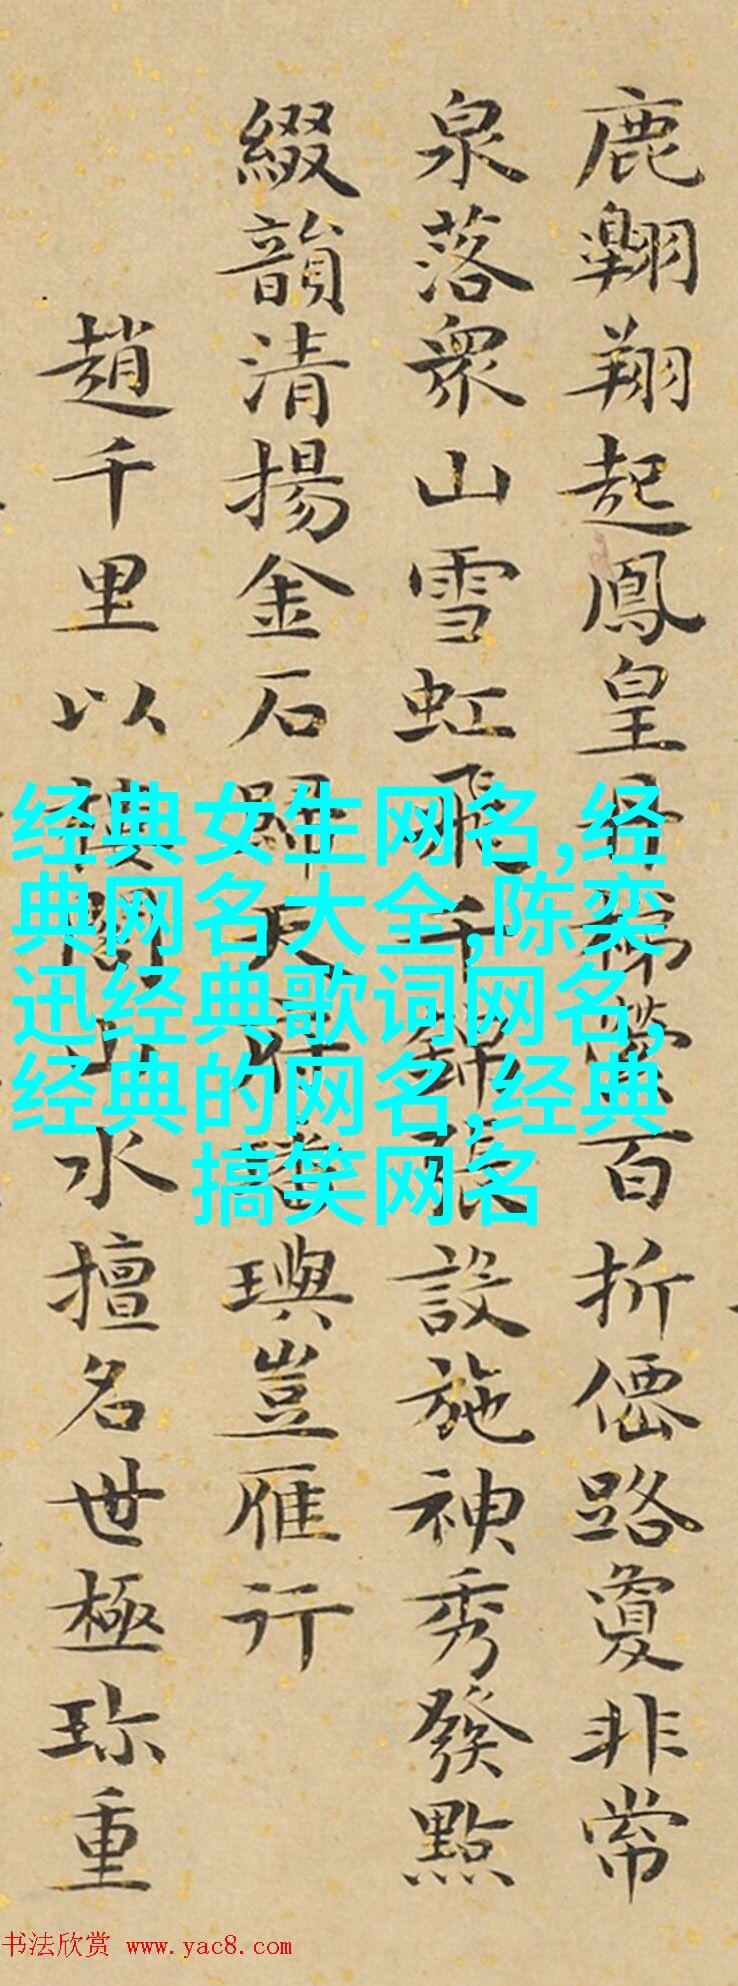 鹿翱翔起鳳皇丹梯縈百折僊路夐非常
泉落衆山雪虹飛千錦張設施神秀發點
綴韻清揚金石歸天府璠璵豈雁行
趙千里以樓閣山水擅名世極珎重
经典女生网名,经
典网名大全,陈奕
迅经典歌词网名,
经典的网名,经典
搞笑网名
书法欣赏 www.yac8.com